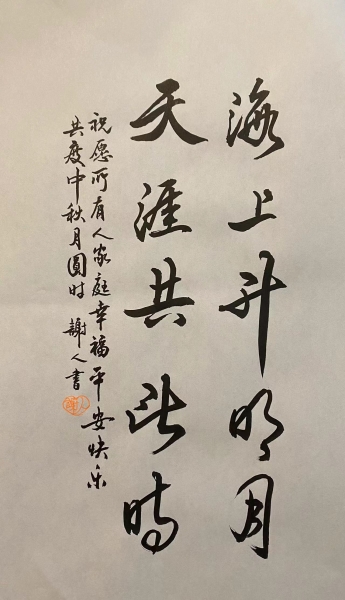 海上升明月
天涯共此時
祝愿所有人家庭幸福平安快乐
共度中秋月圓时 謝人書